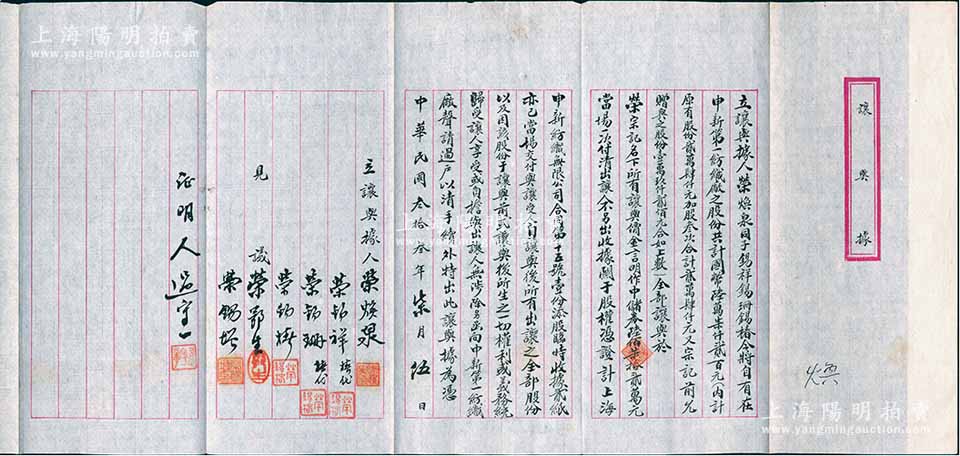 讓與據
立讓與據人榮煥泉同子錫祥錫珊錫椿今將自有在
申新第一紡織廠之股份共計國幣陸萬柒仟貳百元(內計
原有股份貳萬肆仟元加股叁次合計貳萬肆仟元又宗記前允
贈與之股份壹萬玖仟貳佰元合如上數)全部讓與於
榮宗記名下所有讓與價金言明作中儲券陸佰柒拾貳萬元
當場一次付清出讓人不另出收據關于股權憑證計上海
申新紡織無限公司合同第十五號壹份添股臨時收據貳紙
亦已當場交付與讓受人自讓與後所有出讓之全部股份
以及因該股份于讓與前或讓與後所生之一切權利或義務統
歸受讓人享受或負擔與出讓人無涉除另函向申新第一紡織
廠聲請過戶以清手續外特出此讓與據為憑
中華民國叁拾叁年柒月伍日
立讓與據人榮煥泉
榮錫祥
榮錫珊
見議榮鄂生
證明人過守一
煥
上海陽明拍賣
www.yangmingauction.com
上海陽明拍賣
www.yangmingauction.com